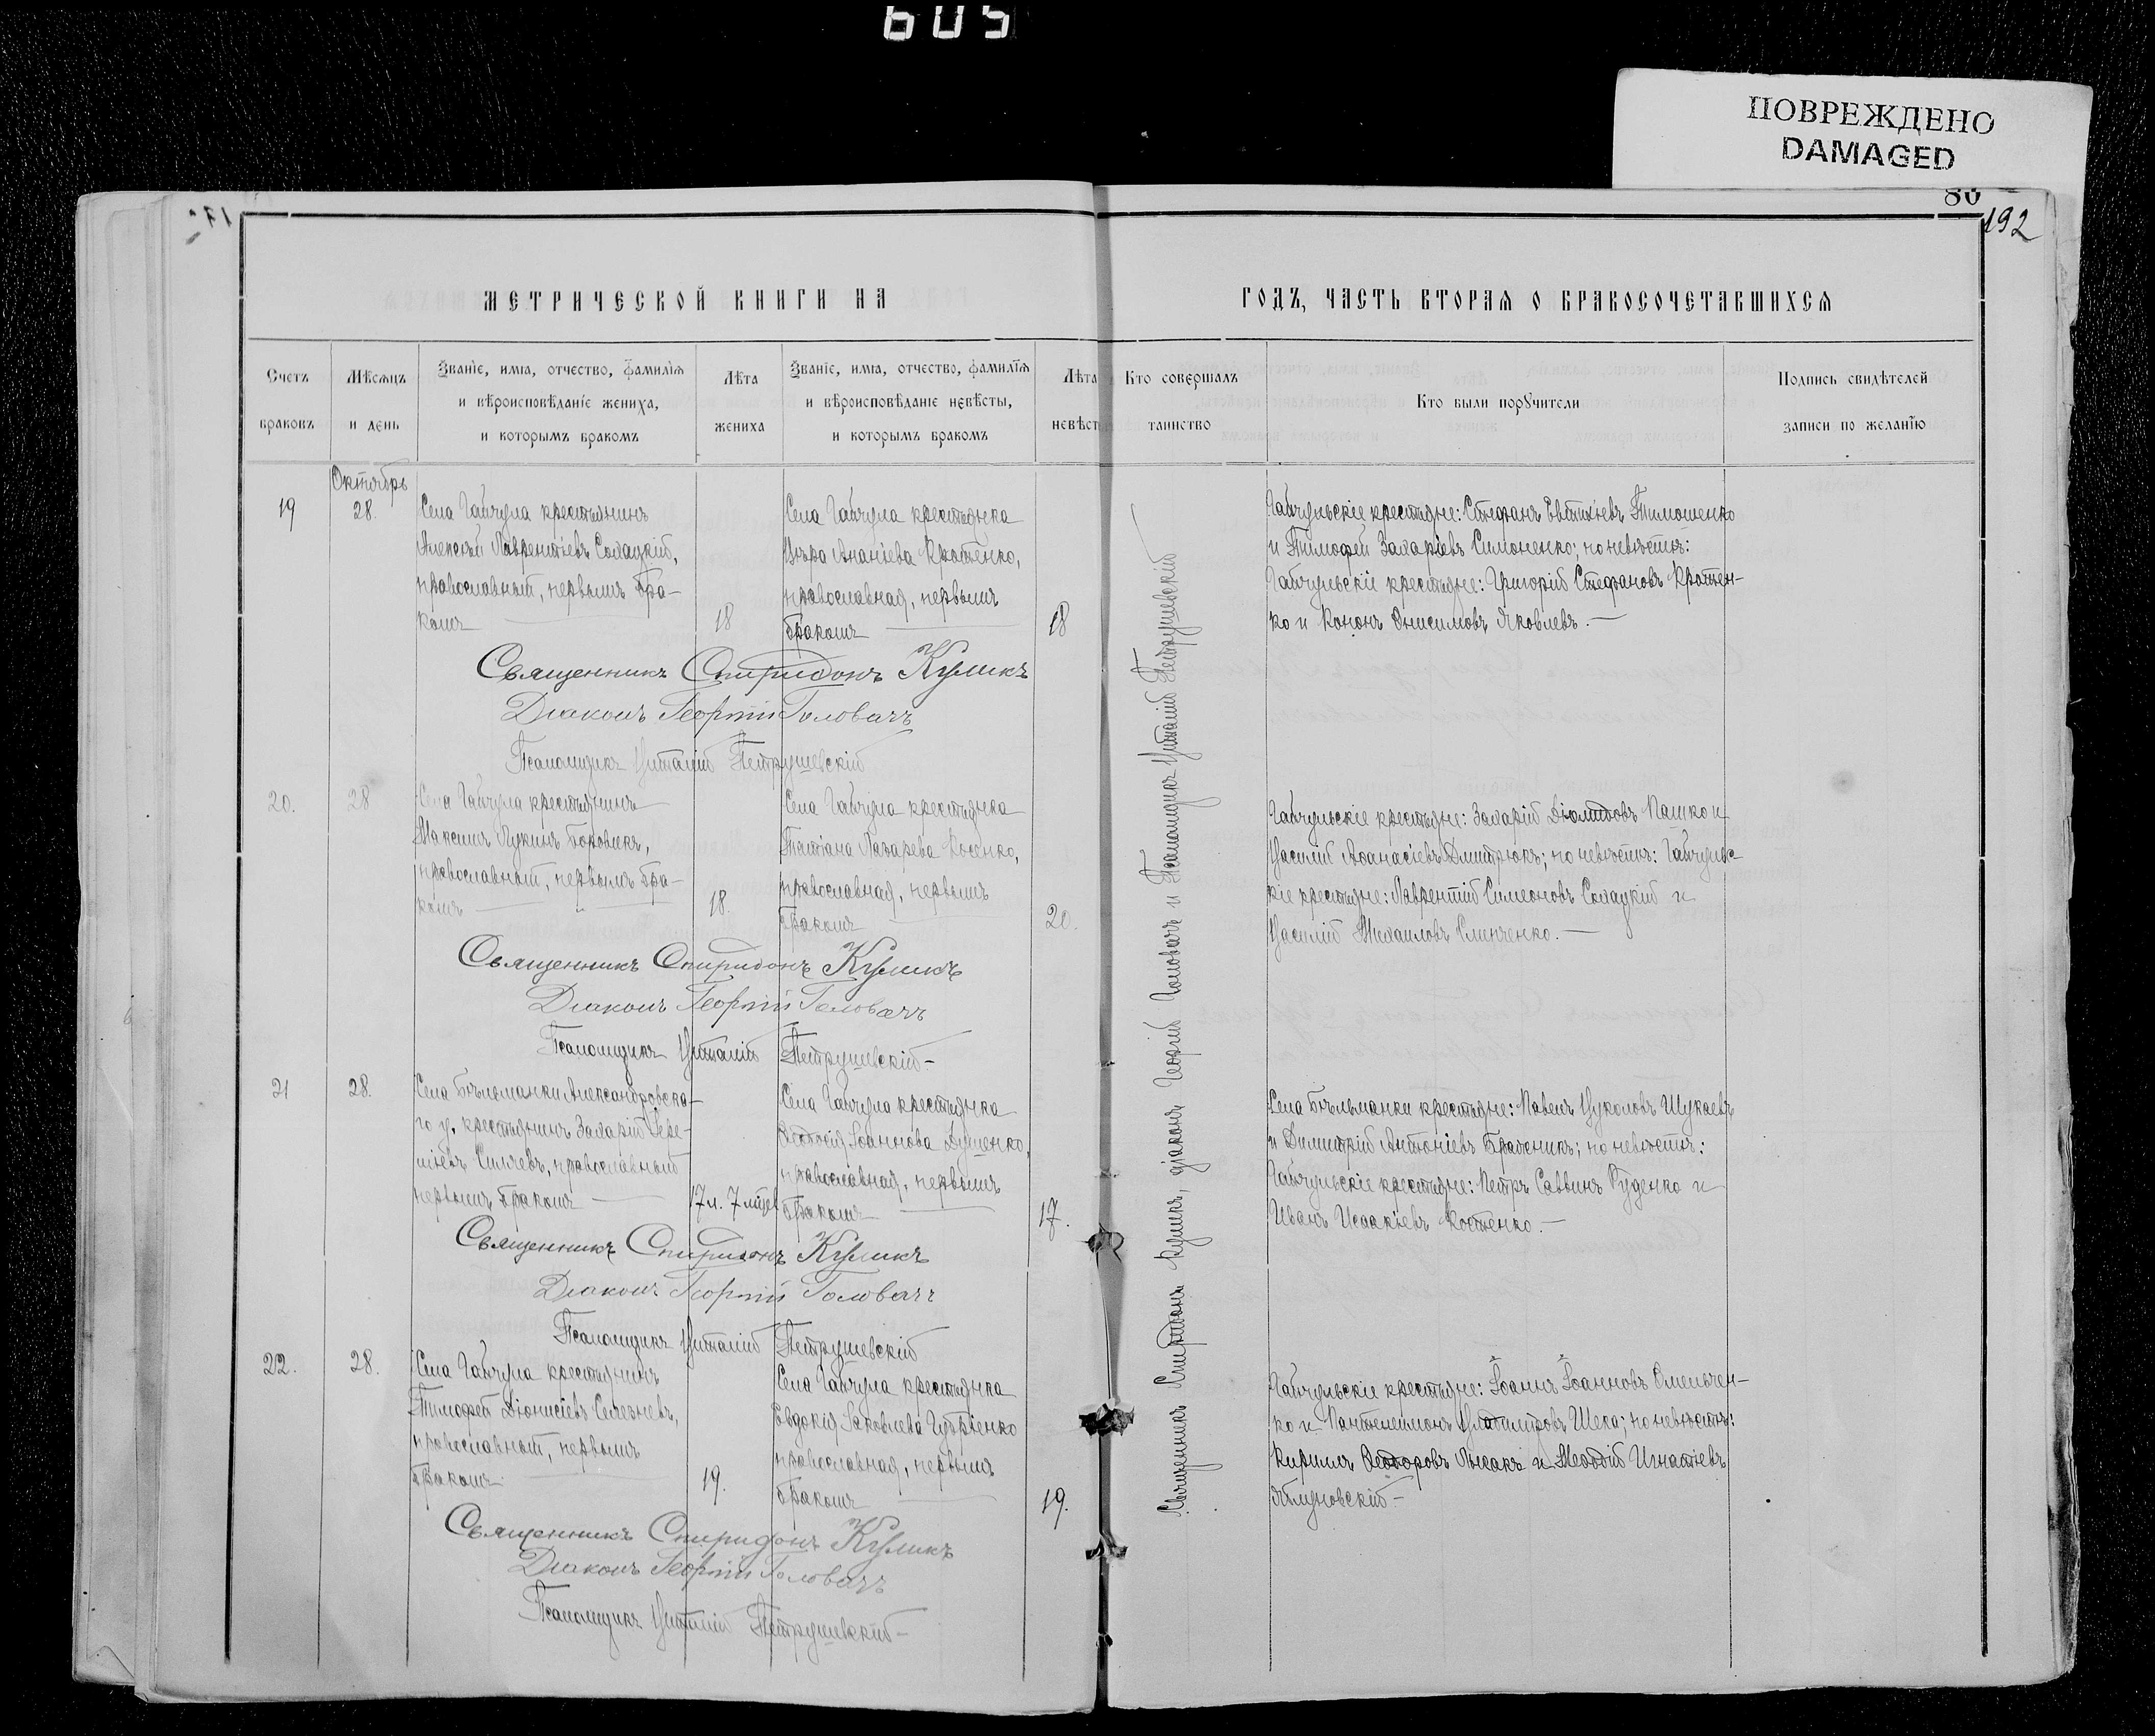 605
ПОВРЕЖДЕНО
DAMAGED
80
192
МЕТРИЧЕСКОЙ КНИГИ НА
ГОДЪ, ЧАСТЬ ВТОРАЯ О БРАКОСОЧЕТАВШИХСЯ
Счетъ браковъ
Мѣсяцъ и день
Званіе, имя, отчество, фамилія
и вѣроисповѣданіе жениха,
и которымъ бракомъ
Лѣта жениха
Званіе, имя, отчество, фамилія
и вѣроисповѣданіе невѣсты,
и которымъ бракомъ
Лѣта невѣст
Кто совершалъ таинство
Кто были поручители
Подпись свидѣтелей
записи по желанію
Октябрь
19
28.
Села Гайчула крестьянинъ
Алексѣй Лаврентіевъ Солацкій,
православный, первымъ бра-
комъ
18
Села Гайчула крестьянка
Вѣра Ананіева Кротенко,
православная, первымъ
бракомъ
18
Гайчульскіе крестьяне: Стефанъ Евтихіевъ Тимошенко
и Тимофей Захаріевъ Симоненко; по невѣстѣ:
Гайчульскіе крестьяне: Григорій Стефановъ Кротен-
ко и Кононъ Онисимовъ Яковлевъ.
Священникъ Спиридонъ Куликъ
Діаконъ Георгій Головачъ
Псаломщикъ Виталій Петрушевскій
20.
28
Села Гайчула крестьянинъ
Максимъ Лукинъ Боровикъ,
православный, первымъ бра-
комъ
18.
Села Гайчула крестьянка
Татіана Лазарева Косенко,
православная, первымъ
бракомъ
20.
Гайчульскіе крестьяне: Захарій Діомидовъ Пашко и
Василій Аѳанасіевъ Дмитрюкъ; по невѣстѣ: Гайчульс-
кіе крестьяне: Лаврентій Симеоновъ Солацкій и
Василій Михаиловъ Слинченко.
Священникъ Спиридонъ Куликъ
Діаконъ Георгій Головачъ
Псаломщикъ Виталій Петрушевскій
21
28.
Села Бѣльманки Александровска-
го у. крестьянинъ Захарій
православный
первымъ бракомъ
17 л. 7 мцев
Села Гайчула крестьянка
Іоаннова
православная, первымъ
бракомъ
17.
Села Бѣльманки крестьяне: Павелъ Вуколовъ Шукаевъ
и Димитрій Антоніевъ по невѣстѣ:
Гайчульскіе крестьяне: Петръ Саввинъ Руденко и
Иванъ Исаакіевъ Костенко.
Священникъ Спиридонъ Куликъ
Діаконъ Георгій Головачъ
Псаломщикъ Виталій Петрушевскій
22.
28.
Села Гайчула крестьянинъ
Тимофей Діонисіевъ Селезневъ,
православный, первымъ
бракомъ
19.
Села Гайчула крестьянка
Евдокія Іаковлева
православная, первымъ
бракомъ
19.
Гайчульскіе крестьяне: Іоаннъ Іоанновъ Омельчен-
ко и Пантелеимонъ Владиміровъ Шека; по невѣстѣ:
Кириллъ Ѳеодоровъ Лысакъ и Меѳодій Игнатіевъ
Яблуновскій
Священникъ Спиридонъ Куликъ
Діаконъ Георгій Головачъ
Псаломщикъ Виталій Петрушевскій
Священникъ Спиридонъ Куликъ, діаконъ Георгій Головачъ и Псаломщикъ Виталій Петрушевскій